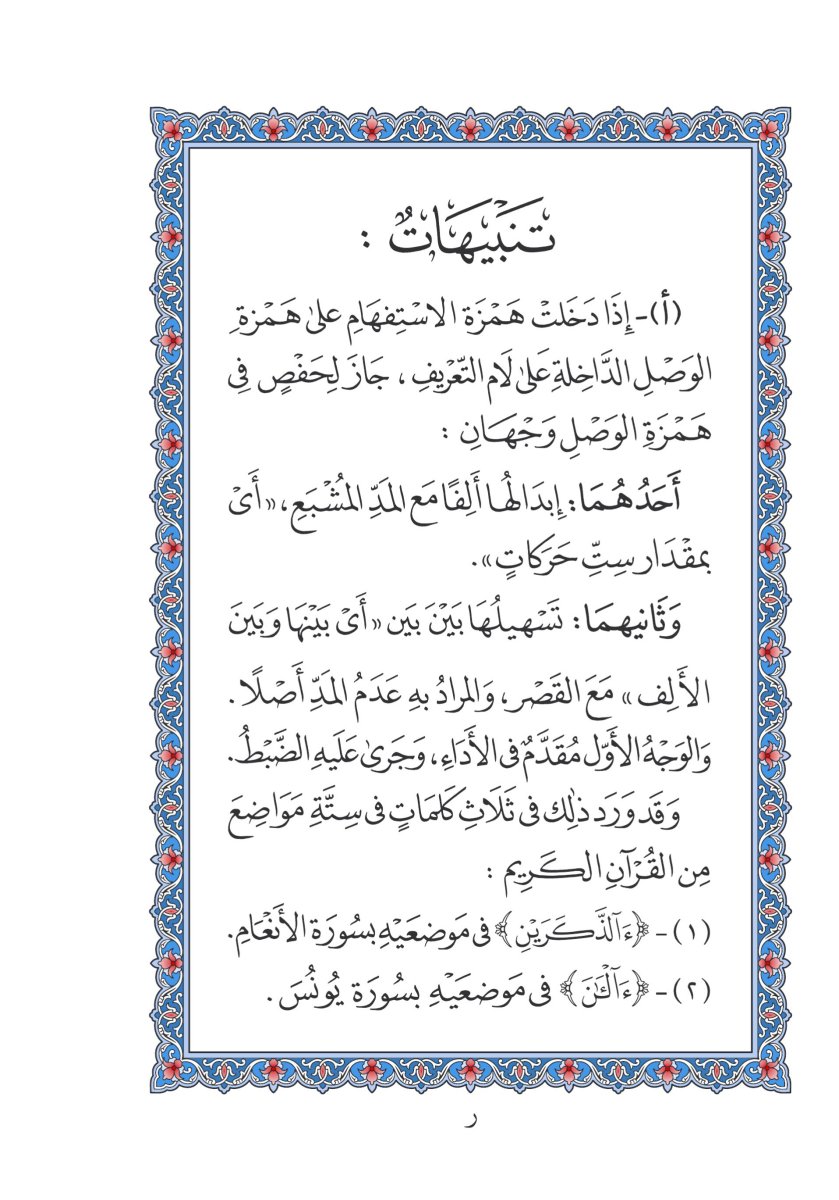 تَنبَيهَاتٌ :
(أ)- إِذَا دَخَلَتْ هَمْزَة الاسْتِفهَامِ علىٰ هَمْزةِ
الوَصْلِ الدَّاخِلةِ عَلىٰ لَام التَّعْرِيفِ ، جَازَ لِحَفْصٍ فِى
هَمْزَةِ الوَصْلِ وَجْهَانِ :
أَحَدُهُمَا: إِبدَالُها أَلِفًا مَع المَدِّ المُشْبَعِ، «أَىْ
بمقْدَار سِتِّ حَرَكاتٍ».
وَثَانيهمَا: تَسْهيلُهَا بَيْنَ بَين «أَىْ بَيْنهَا وَبَينَ
الأَلِف» مَعَ القَصْر، وَالمرادُ بهِ عَدَمُ المَدِّ أَصْلًا.
وَالوَجْهُ الأَوَّل مُقَدَّمٌ فى الأَدَاءِ، وَجَرىٰ عَلَيهِ الضَّبْطُ.
وَقَد وَرَد ذٰلِك فى ثَلَاثِ كَلمَاتٍ فى سِتَّةِ مَوَاضِعَ
مِن القُرْآنِ الكَرِيم :
(١)- ﴿ءَآلذَّكَرَيْنِ﴾ فى مَوضعَيْهِ بسُورَة الأَنْعَامِ.
(٢)- ﴿ءَآلْـَٰٔنَ﴾ فى مَوضعَيْهِ بسُورَة يُونُسَ.
ر